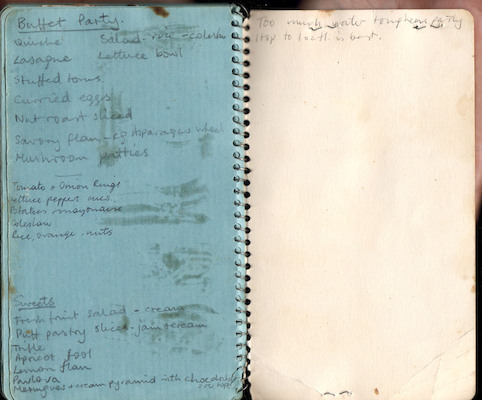 Buffet Party.
Quiche Salad - rice - coleslaw
Lasagne Lettuce bowl
Stuffed toms.
Curried eggs
Nut roast sliced
Savoury flan - eg Asparagus wheel
Mushroom patties
Tomato + Onion Rings
lettuce peppers cucs.
Potatoes mayonaise
Coleslaw
Rice, orange - nuts
Sweets
Fresh fruit salad - cream
Puff pastry slices - jam + cream
Trifle
Apricot fool
Lemon flan
Pavlova
Meringues + cream pyramid with choc
Too much water toughens pastry
1tsp to is best.